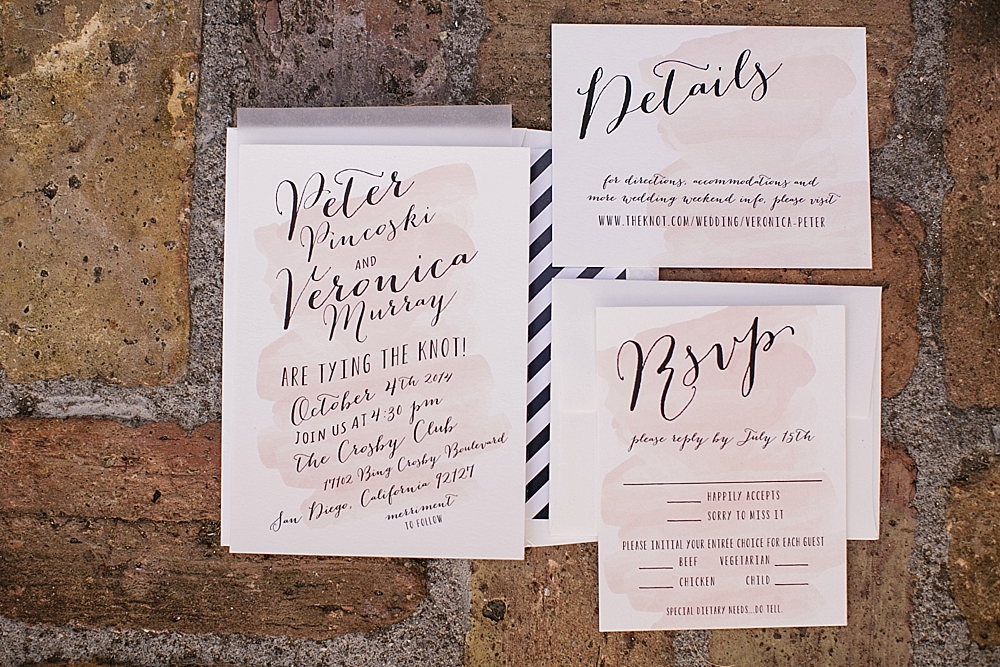 Peter
Pincoski
AND
Veronica
Murray
ARE TYING THE KNOT!
October 4th 2014
JOIN US AT 4:30 pm
the Crosby Club
17102 Bing Crosby Boulevard
San Diego, California 92127
merriment
TO FOLLOW
Details
for directions, accommodations and
more wedding weekend info, please visit
WWW.THEKNOT.COM/WEDDING/VERONICA-PETER
Rsvp
please reply by July 15th
HAPPILY ACCEPTS
SORRY TO MISS IT
PLEASE INITIAL YOUR ENTRÉE CHOICE FOR EACH GUEST
BEEF VEGETARIAN
CHICKEN CHILD
SPECIAL DIETARY NEEDS...DO TELL.